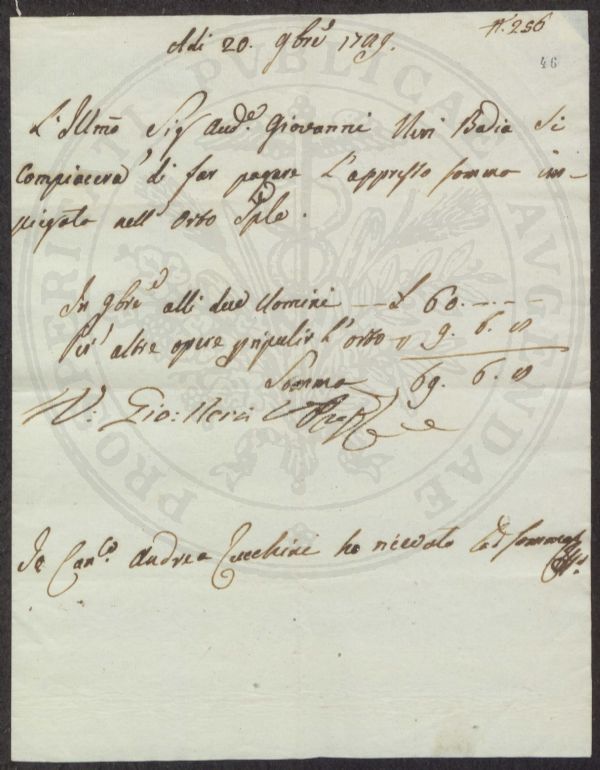 N.° 256
46
Adi 20. 9bre 1799.
L'Illmo Sig Aud.e Giovanni Neri Badia Si
Compiacerà di far pagare l'appresso somma im-
piegata nell' Orto Sple.
In 9bre alli due Uomini - - L 60. - - -
Per altre opere p ripulir L'orto 9. 6. 8
Somma 69. 6. 8
V: Gio: Neri
Io Can.co Andrea Zucchini ho ricevuto la d Somma
PROSPERITATI PVBLICAE AVGENDAE